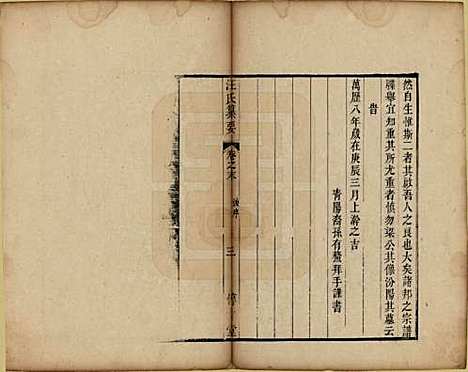 然自生惟斯二者其啟吾人之良也大矣諸邦之宗譜
牒舉宜知重其所尤重者慎勿梁公其像汾陽其墓云
旹
萬曆八年歲在庚辰三月上澣之吉
青陽裔孫有螯拜手謹書
汪氏纂要
卷之末
後序
三
堂